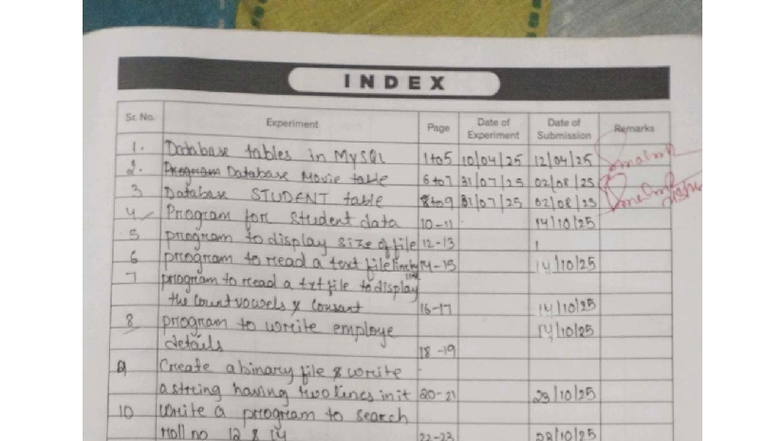 INDEX
Sr. No. Experiment Page Date of Experiment Date of Submission Remarks
1. Database tables in MySQL 1 to 5 10/04/25 12/04/25
2. Program Database Movie table 6 to 7 31/07/25 02/08/25
3 Database STUDENT table 8 to 9 31/07/25 02/08/25
4 Program for Student data 10-11 14/10/25
5 program to display size of file 12-13
6 program to read a text file line by line 14-15 14/10/25
7 program to read a txt file to display
the count vowels & consant 16-17 14/10/25
8 program to write employe 14/10/25
details 18-19
9 Create a binary file & write
a string having two lines in it 20-21 23/10/25
10 Write a program to search
roll no 12 & 14 22-23 28/10/25